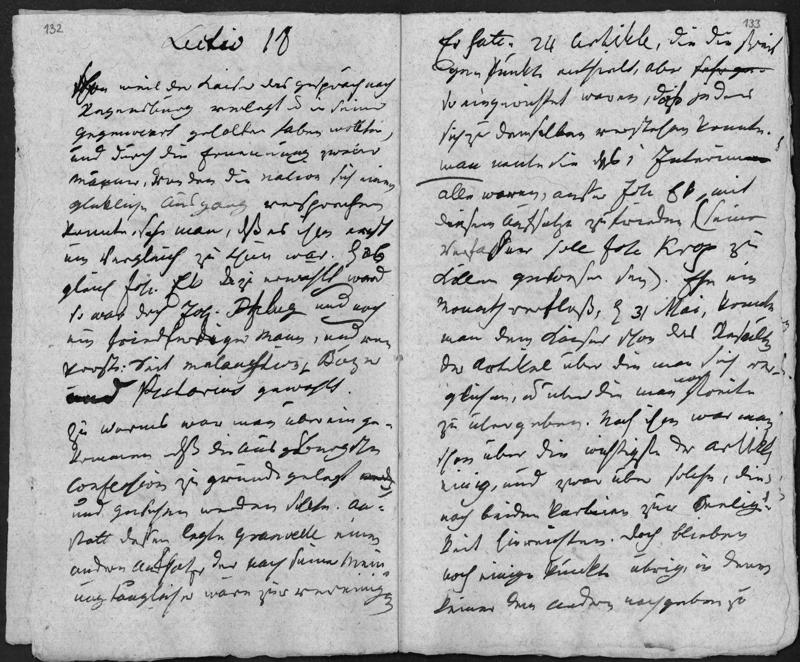 132
Lectio 18
Schon weil der Kaiser das gespräch nach
Regensburg verlegt u in seiner
gegenwart gehalten haben wollte,
und durch die Ernennung zweier
männer, von den die nation sich einen
glüklichen Ausgang versprechen
konnte, sah man, daß es ihm ernst
um Vergleich zu thun war. Ob
gleich Joh. Ek dazu erwählt ward
so war doch Jul. Pflug und noch
ein friedfertiger Mann, und von
Protest: Seit Melanchton, Buzer
und Pistorius gewählt.
Zu worms war man überein ge-
kommen daß die Augsburgische
Confession zu grunde gelegt
und gesprochen werden sollte. An-
statt dessen legte Granvelle einen
andern Aufsatz der nach seiner Mein
ung tauglicher wäre zur vereinig
133
Er hatte 24 Artikle, die die streit
igen Punkte enthielt, aber
so eingerichtet waren, daß jeder
sich zu demselben verstehen konnte.
man nante die das Interim
alle waren, ausser Joh Ek, mit
diesem Aufsatze zufrieden (seine
Verfasser soll Joh Krop zu
Köllen gewesen sein). Ehe ein
Monath verfloß, d 31 Mai, konnte
man dem Kaiser schon das Resultat
der Artikel über die man sich ver-
glichen, u über die man noch streite
zu übergeben. Nach ihm war man
schon über die wichtigste der Artikel
einig, und zwar über solche, die
nach beiden Partheien zur Seelig-
keit hinreichten. Doch blieben
noch einige Punkte übrig, in denen
keiner dem andern nachgeben zu